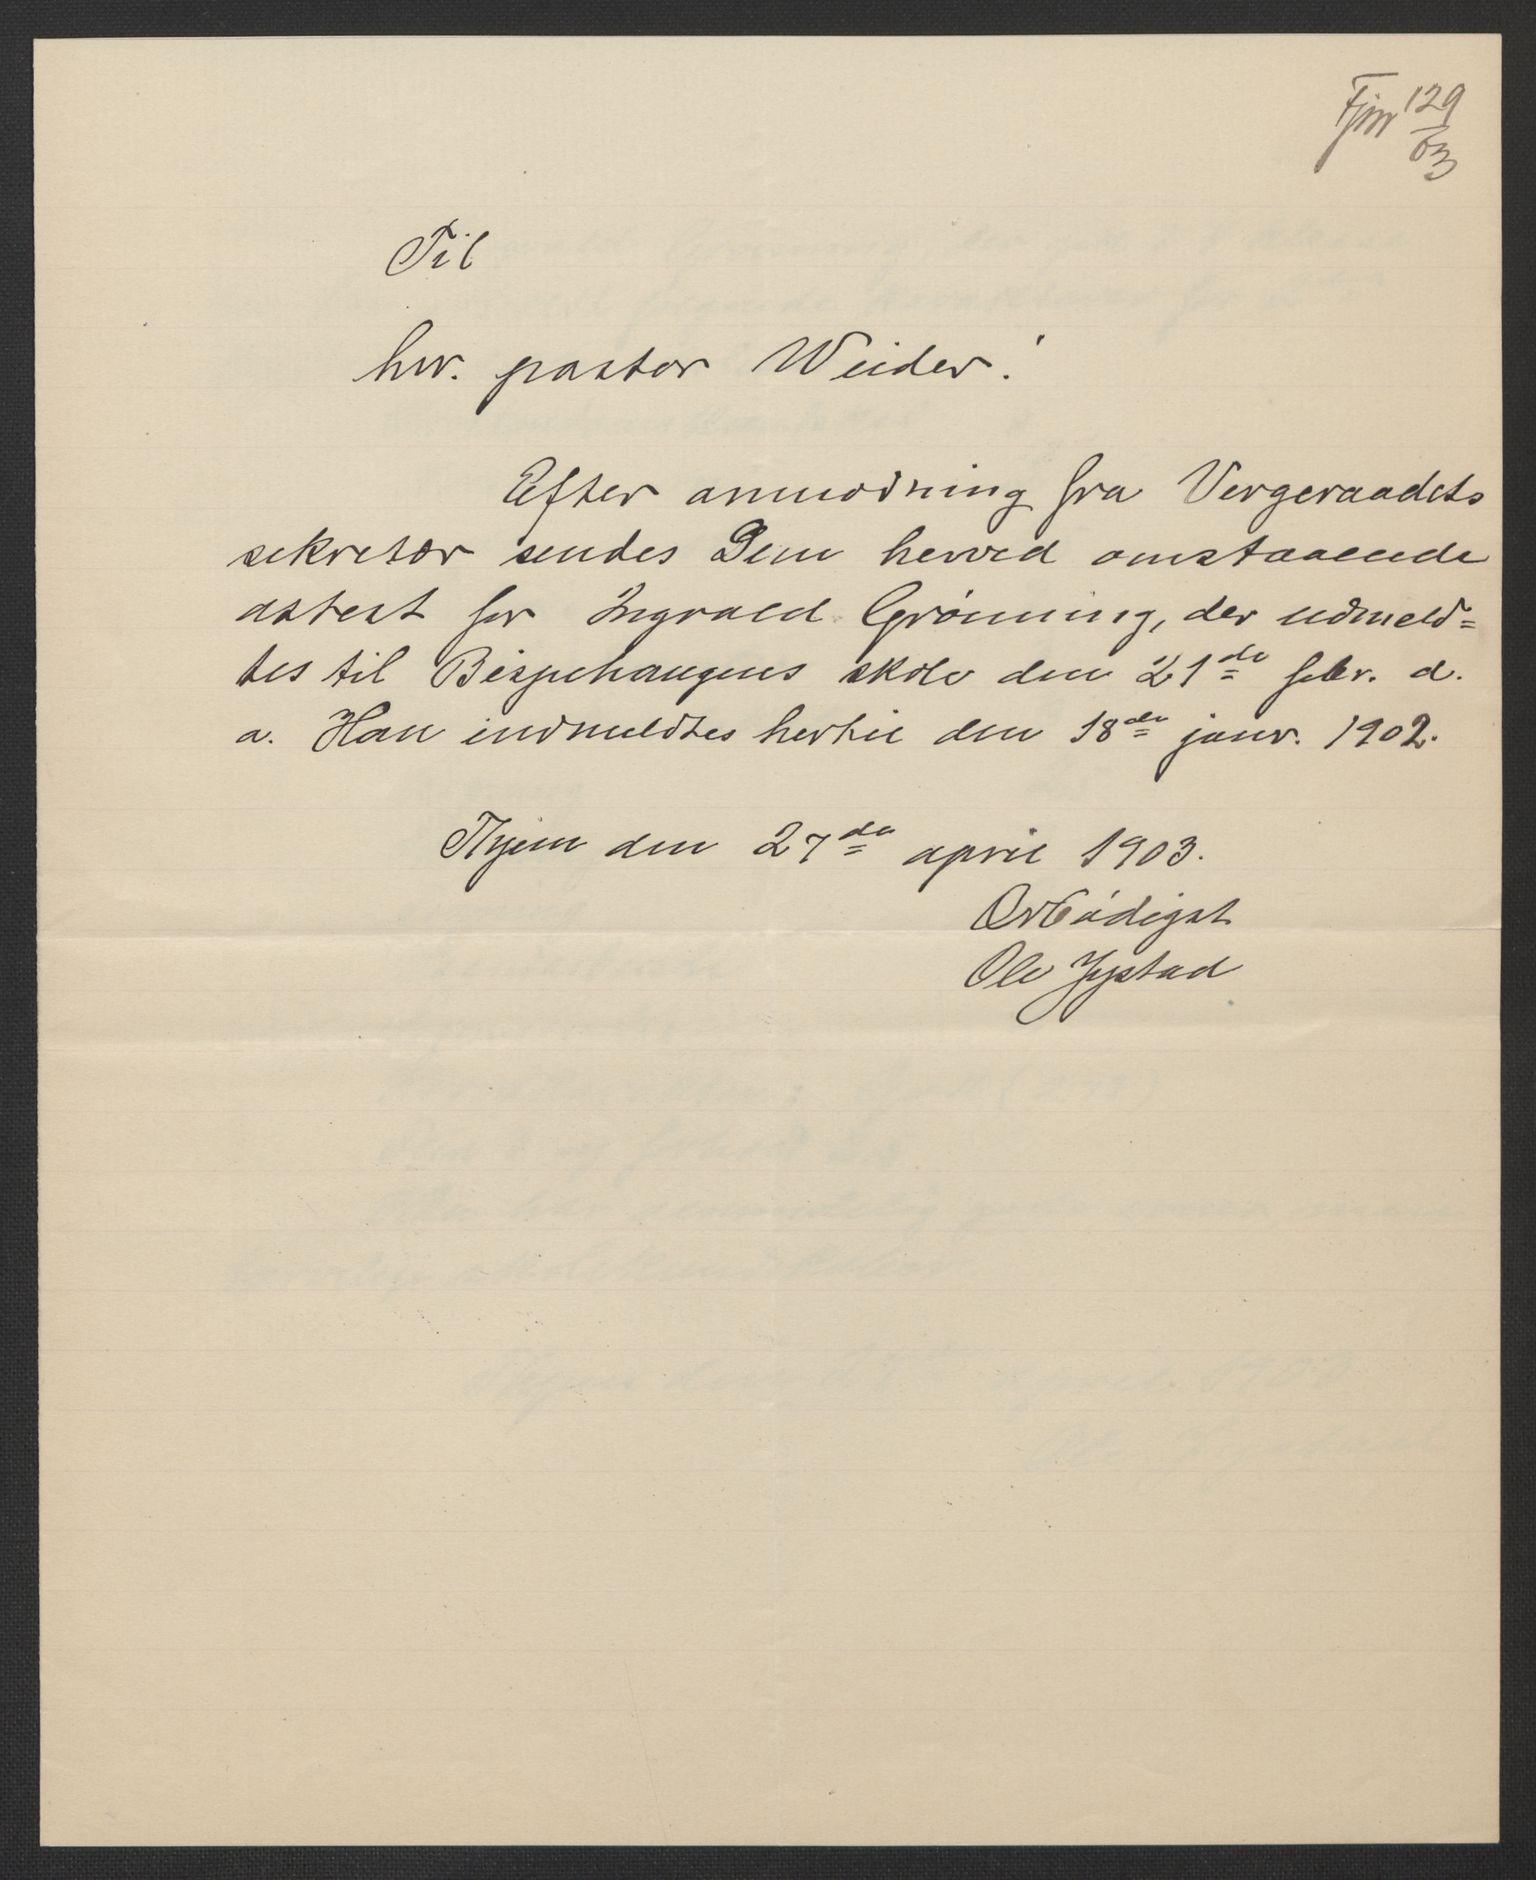 129
03
Til
hr. pastor Weider!
Efter anmodning fra Vergeraadets
sekretær sendes Dem herved omstaaende
attest for Ingvald Grönning, der udmeld=
tes til Bispehaugens skole den 21de febr. d.
a. Han indmeldtes hertil den 18de janr. 1902.
Thjem den 27de april 1903.
Ærbödigst
Ole Jystad